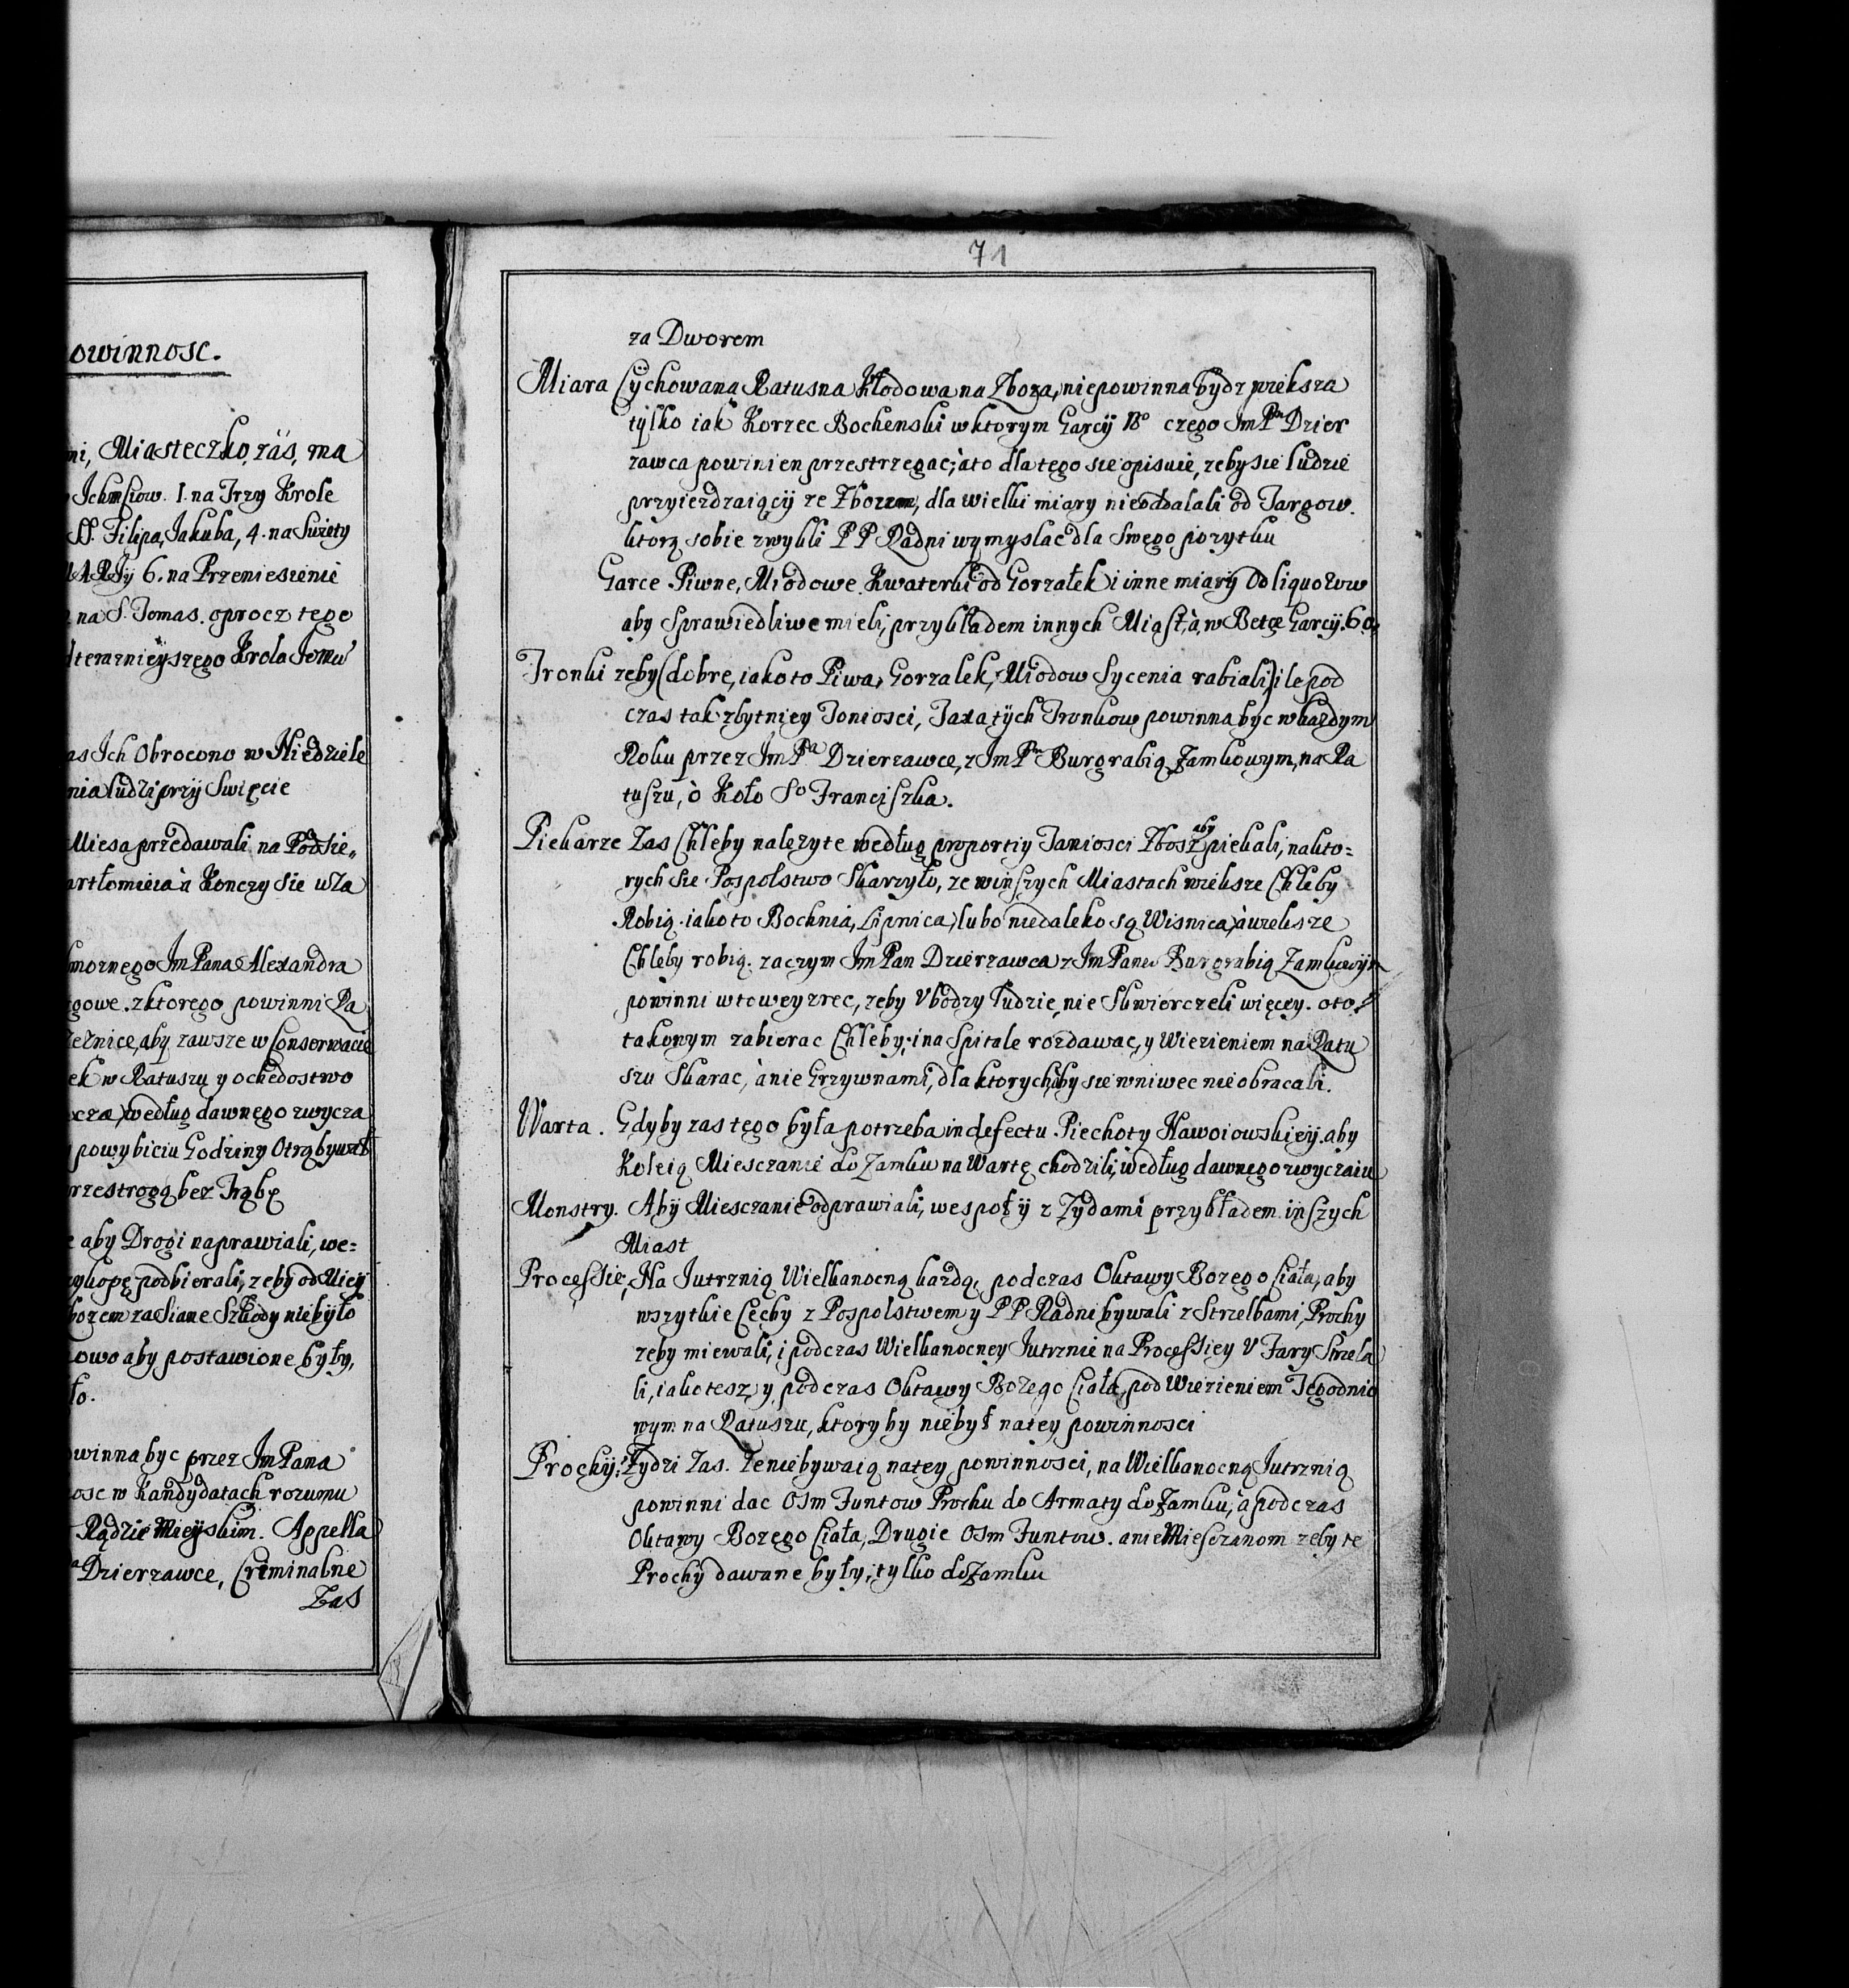 owinnosc.
ni, Miasteczko, zás, ma
Ichmsciow. 1. na Trzy Krole
SS. Filipa, Jakuba, 4. na Swięty
6. na Przeniesienie
na S. Tomas. oprocz tego
teraznieyszego Krola Jemu
as Ich Obrocono w Niedziele
nia ludzi przÿ Swięcie
Miesa przedawali na Podsie„
artłomieia à Konczy sie uza
moznego Jm Pana Alexandra
gowe. z ktorego powinni Ra
zeznice, aby zawsze w Conserwacie
ek w Ratuszu y ochedostwo
według dawnego zwycza
powybiciu Godziny Otrąbywał
rzestrogą bez Trąbę
aby Drogi naprawiali, we=
podbierali, zeby od Miey
bozem zasiane Szkody niebyło
owo aby postawione były,
ło.
owinna byc przez Jm Pana
osc w Kandÿdatach rozumu
Rądzie Mieÿskim. Appella
Dzierzawce, Criminalne
Zas
71
za Dworem
Miara Cÿchowana Ratusna Kłodowa na Zboza, niepowinna bydz wieksza
tylko iak Korzec Bochenski w ktorym Garcÿ 18 czego Jm Pn Dzier
zawca powinien przestrzegac, àto dla tego sie opisuie, zeby sie ludzie
przyiezdzaiącÿ ze Zbozem, dla wielki miary nieoddalali od Targow.
ktorą sobie zwykli P P Radni wymyslac dla Swego pozytku
Garce Piwne, Miodowe. Kwaterki od Gorzałek i inne miarÿ Od liquorow
aby Sprawiedliwe mieli, przykładem innych Miast, à, w Betce Garcÿ. 60.
Tronki zeby (dobre, iako to Piwa, Gorzalek, Miodow Sycenia rabiali) ile pod
czas tak zbytniey Toniosci, Taxa tÿch Tronkow powinna byc w kazdym
Roku przez Jm Pa Dzierzawce, z Jm Pm Burgrabią Zamkowym, na Ra
tuszu, ò Koło So Franciszka.
Piekarze Zas Chleby nalezyte według proportiy Taniosci Zbosz aby piekali, na kto=
rych sie Pospolstwo Skarzyło, ze winszych Miastach wieksze Chleby
Robią. iako to Bochnia, Lipnica, lubo niedaleko są Wisnica, à wieksze
Chleby robią. zaczym Jm Pan Dzierzawca z Jm Panem Burgrabią Zamkowÿm
powinni w to weyzrec, zeby Ubodzy ludzie, nie Skwierczeli więcey. oto
takowym zabierac Chleby, i na Spitale rozdawac, y Wiezieniem na Ratu
szu Skarac, à nie Grzywnami, dla ktorych by sie wniwec nie obracali.
Warta. Gdyby zas tego była potrzeba in defectu Piechoty Nawoiowskieÿ. aby
Koleią Miesczanie do Zamku na Wartę chodzili, według dawnego zwyczaiu
Monstry. Abÿ Miesczanie odprawiali, wespoł ÿ z Zydami przykładem inszych
Miast
Processie, Na Jutrznią Wielkanocną kazdą, podczas Oktawy Bozego Ciała, aby
wszytkie Cechy z Pospolstwem y P P Radni bywali z Strzelbami, Prochy
zeby miewali, i podczas Wielkanocney Jutrznie na Processiey U Fary Strzela
li, iako tesz y podczas Oktawy Bozego Ciała, pod Wiezieniem Tegodnio
wym na Ratuszu, ktory by niebył na tey powinnosci
Prochÿ: Zydzi Zas. Ze niebywaią na tey powinnosci, na Wielkanocną Jutrznią
powinni dac Osm Funtow Prochu do Armaty do Zamku, à podczas
Oktawy Bozego Ciała, Drugie Osm Funtow. a nie Miesczanom zeby te
Prochÿ dawane były, tylko do Zamku